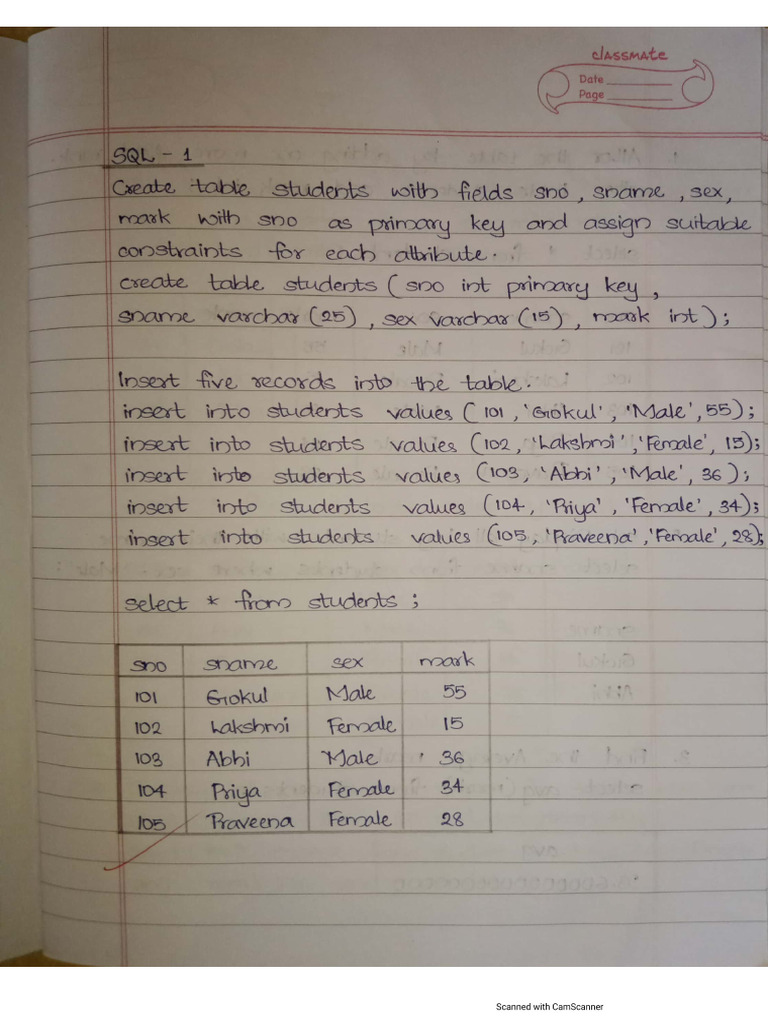 classmate
Date
Page
SQL - 1
Create table students with fields sno, sname, sex,
mark with sno as primary key and assign suitable
constraints for each attribute.
create table students ( sno int primary key,
sname varchar (25), sex varchar (15), mark int );
Insert five records into the table.
insert into students values ( 101, 'Gokul', 'Male', 55);
insert into students values (102, 'Lakshmi', 'Female', 15);
insert into students values (103, 'Abhi', 'Male', 36 );
insert into students values (104, 'Priya', 'Female', 34);
insert into students values (105, 'Praveena', 'Female', 28);
select * from students ;
sno sname sex mark
101 Gokul Male 55
102 Lakshmi Female 15
103 Abhi Male 36
104 Priya Female 34
105 Praveena Female 28
Scanned with CamScanner